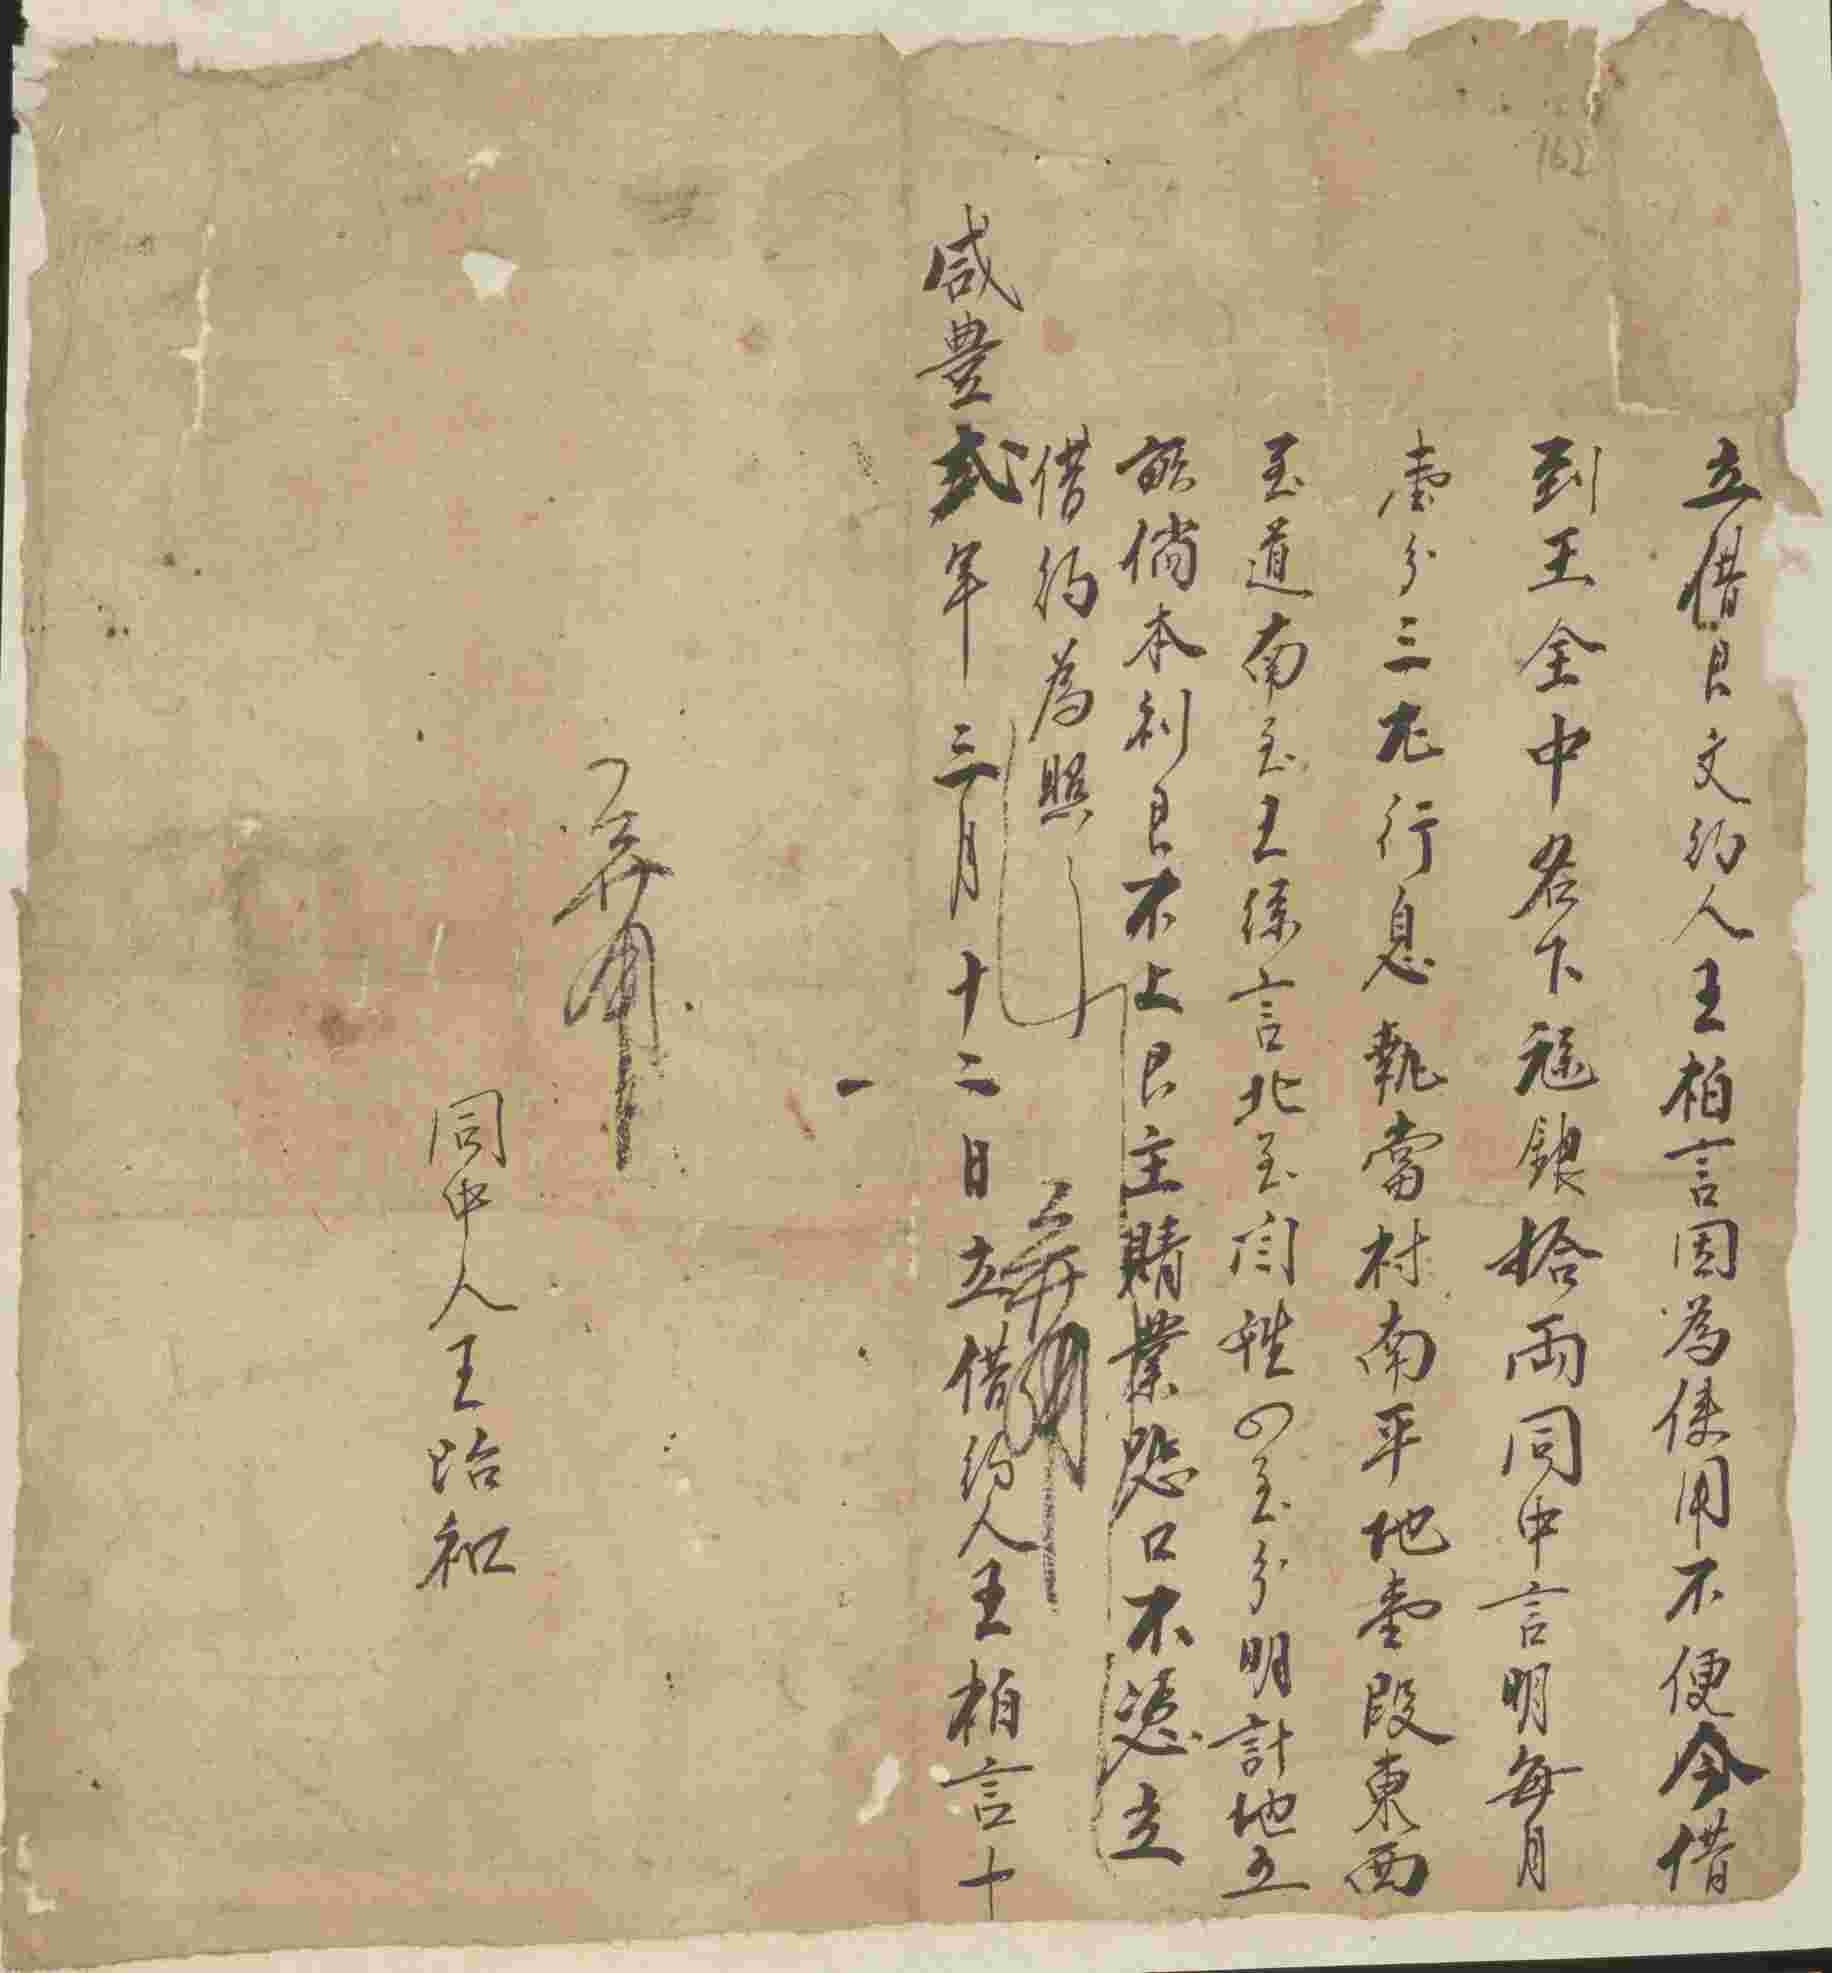 立借艮文約人王柏言因為使用不便今借
到王全中名下禄銀拾兩同中言明每月
壹分三尤行息執當村南平地壹段東西
至道南至王孫言北至閆 四至分明計地五
畝倘本利艮不上艮主賭業 口不憑立
借約為照
咸豊弍年三月十二日立借約人王柏言十
同中人王 和
162